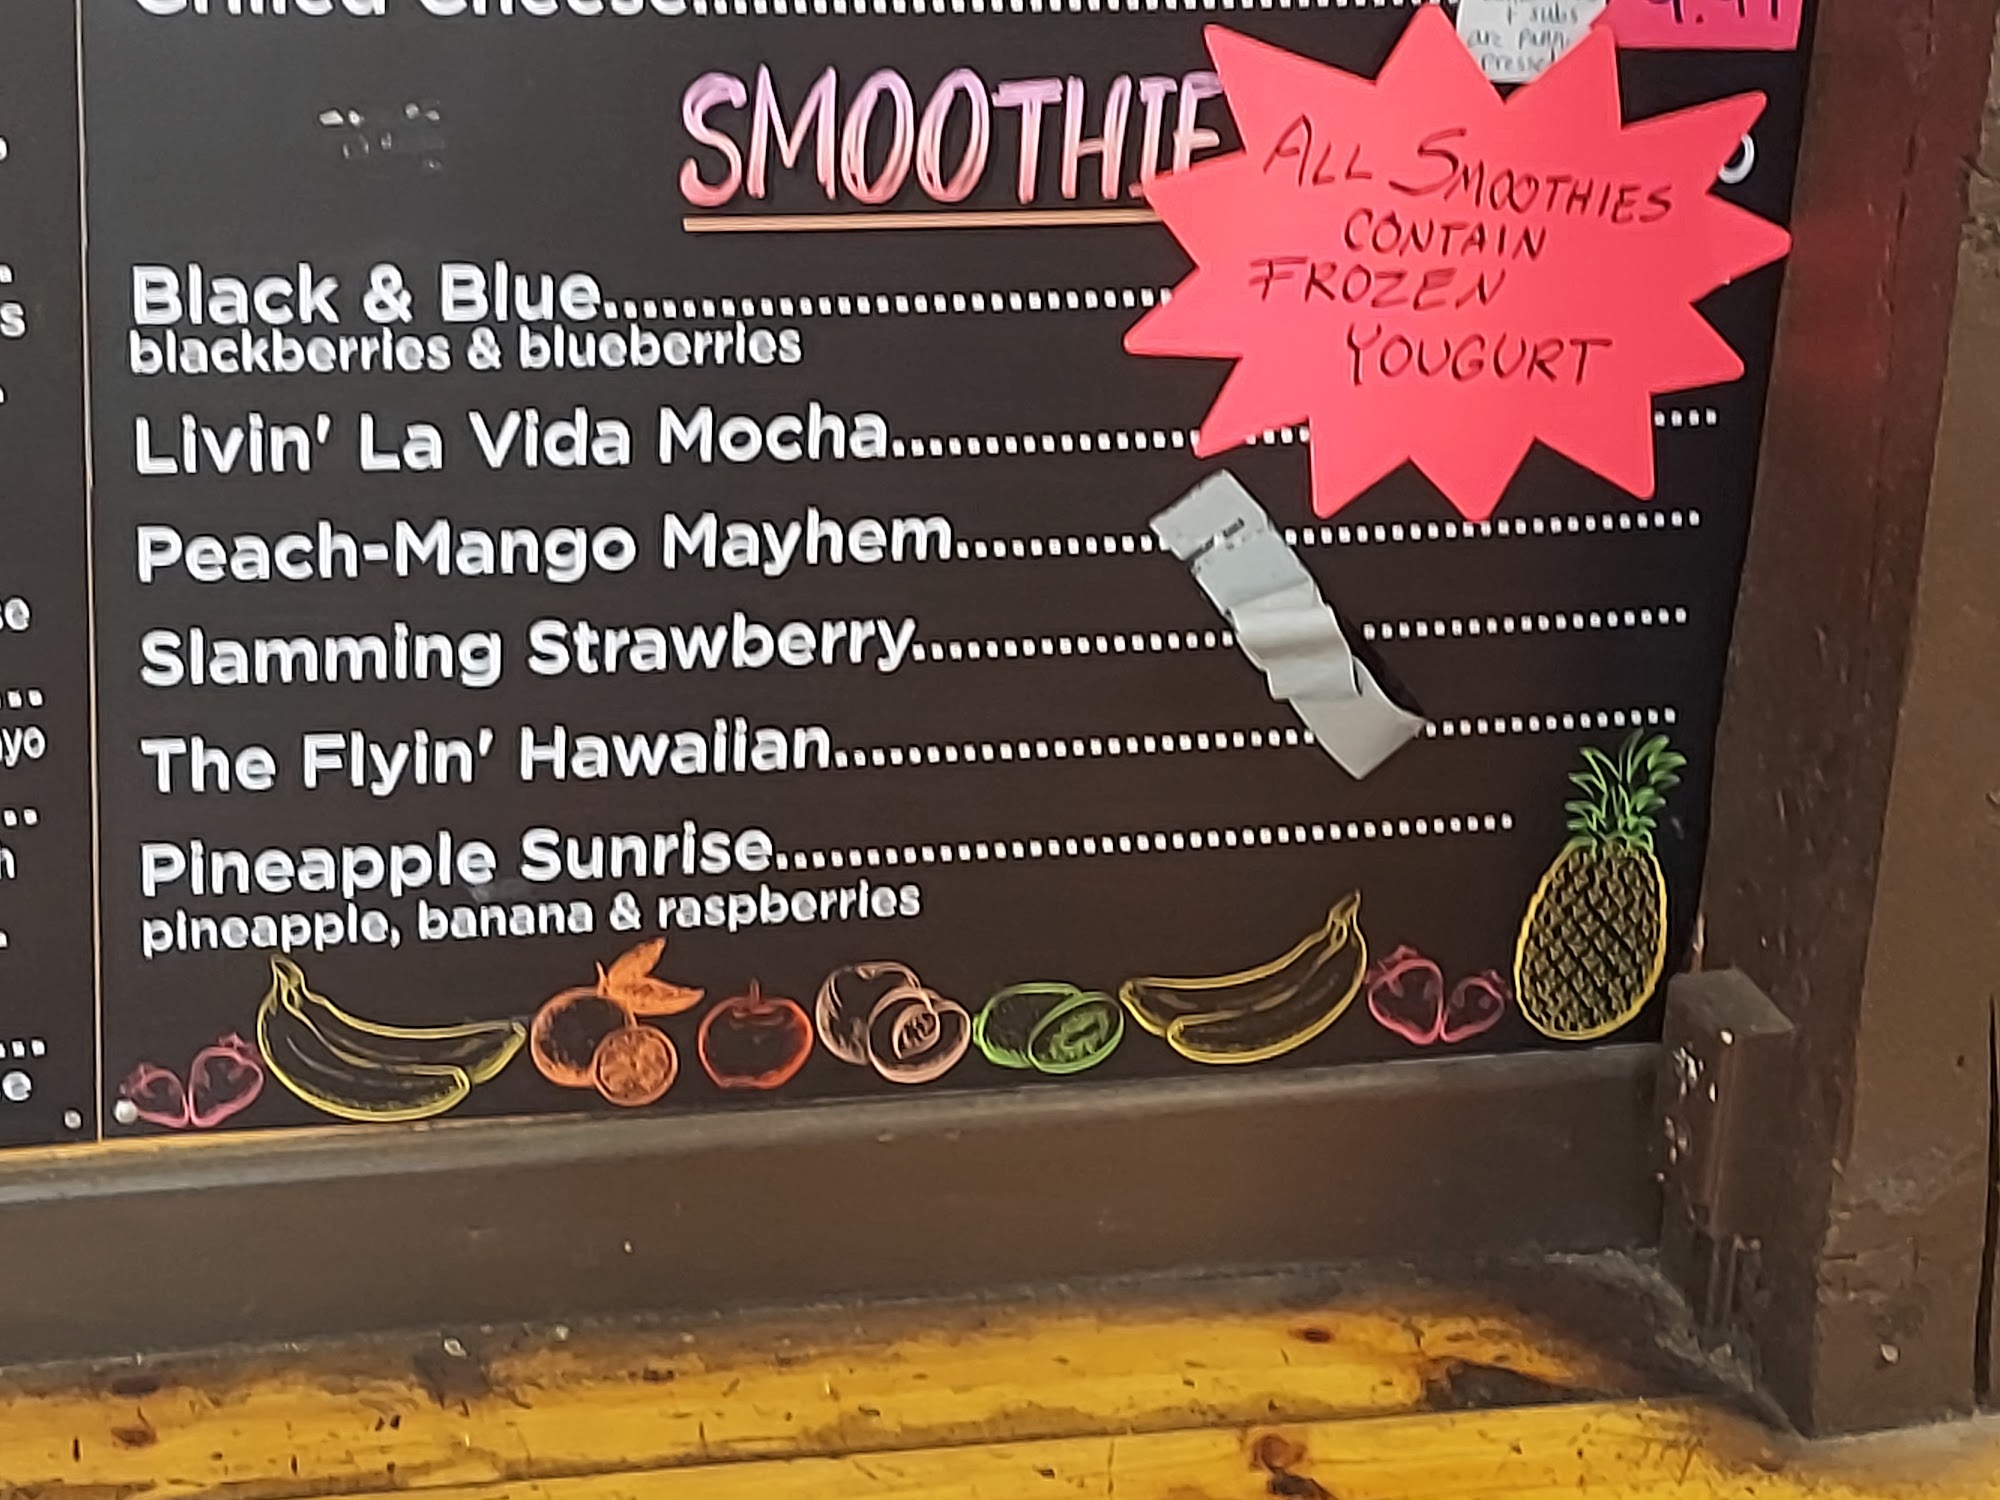 Grilled Cheese..........
+ subs
are
Pressed
SMOOTHIE
ALL SMOOTHIES
CONTAIN
FROZEN
YOUGURT
Black & Blue..........
blackberries & blueberries
Livin' La Vida Mocha..........
Peach-Mango Mayhem..........
Slamming Strawberry..........
The Flyin' Hawaiian..........
Pineapple Sunrise..........
pineapple, banana & raspberries